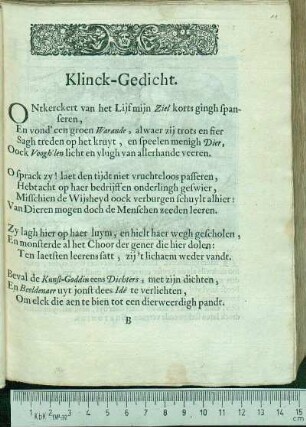 Klinck-Gedicht.
ONtkerckert van het Lijf mijn Ziel korts gingh span-
seren,
En vond' een groen Warande, alwaer zij trots en fier
Sagh treden op het kruyt, en speelen menigh Dier,
Oock Vogh'len licht en vlugh van allerhande veeren.
O sprack zy! laet den tijdt niet vruchteloos passeren,
Hebt acht op haer bedrijff en onderlingh geswier,
Misschien de Wijsheyd oock verburgen schuylt alhier:
Van Dieren mogen doch de Menschen zeeden leeren.
Zy lagh hier op haer luym, en hielt haer wegh gescholen,
En monsterde al het Choor der gener die hier dolen:
Ten laetsten leerens satt, zij 't lichaem weder vandt.
Beval de Kunst-Goddin eens Dichters, met zijn dichten,
En Beeldenaer uyt jonst dees Idé te verlichten,
Om elck die aen te bien tot een dierweerdigh pandt.
B
1 2 3 4 5 6 7 8 9 10 11 12 13 14 15
cm